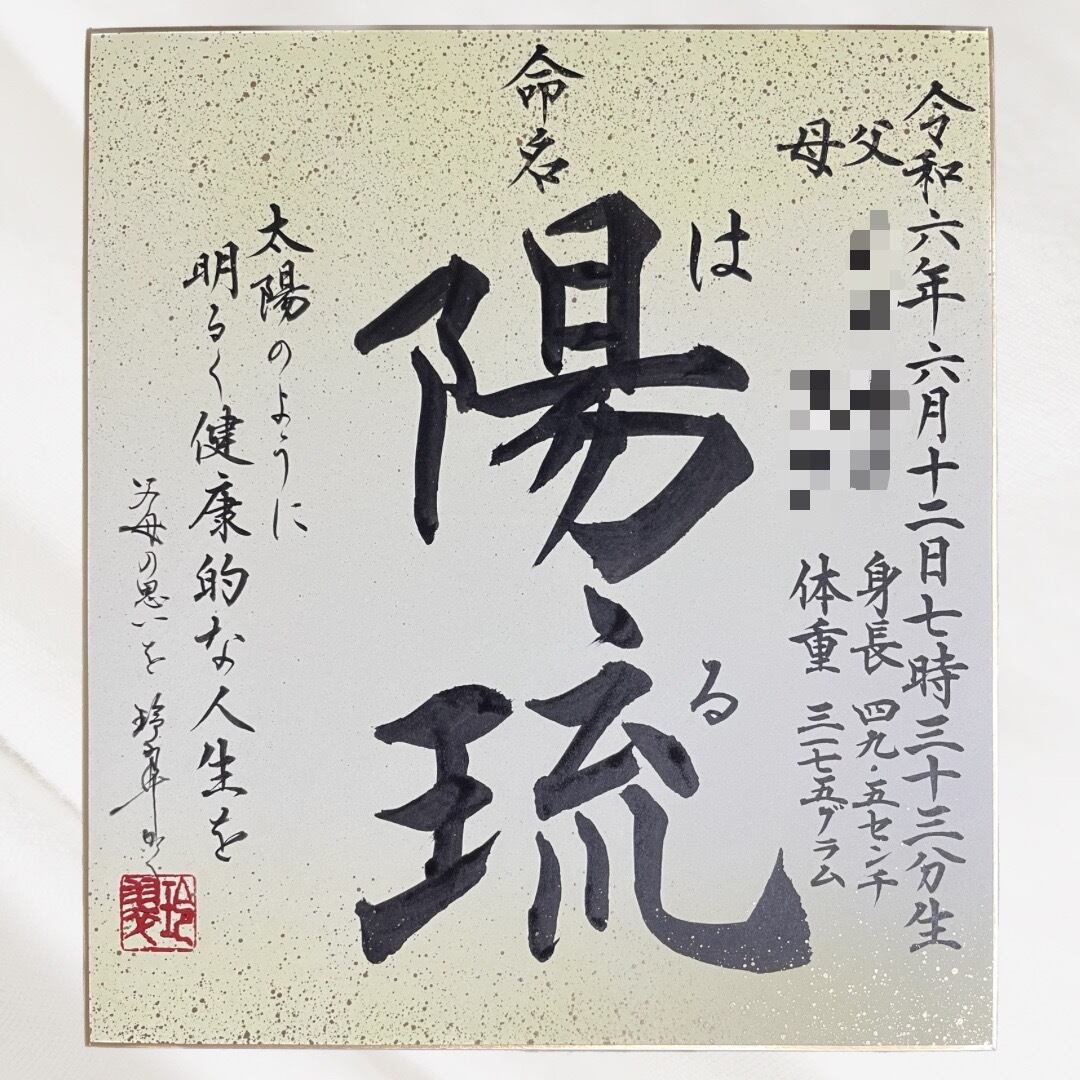 令和六年六月十二日七時三十三分生
父
母
身長 四九・五センチ
体重 三一七五グラム
命名
陽琉
はる
太陽のように
明るく健康的な人生を
父母の思いを